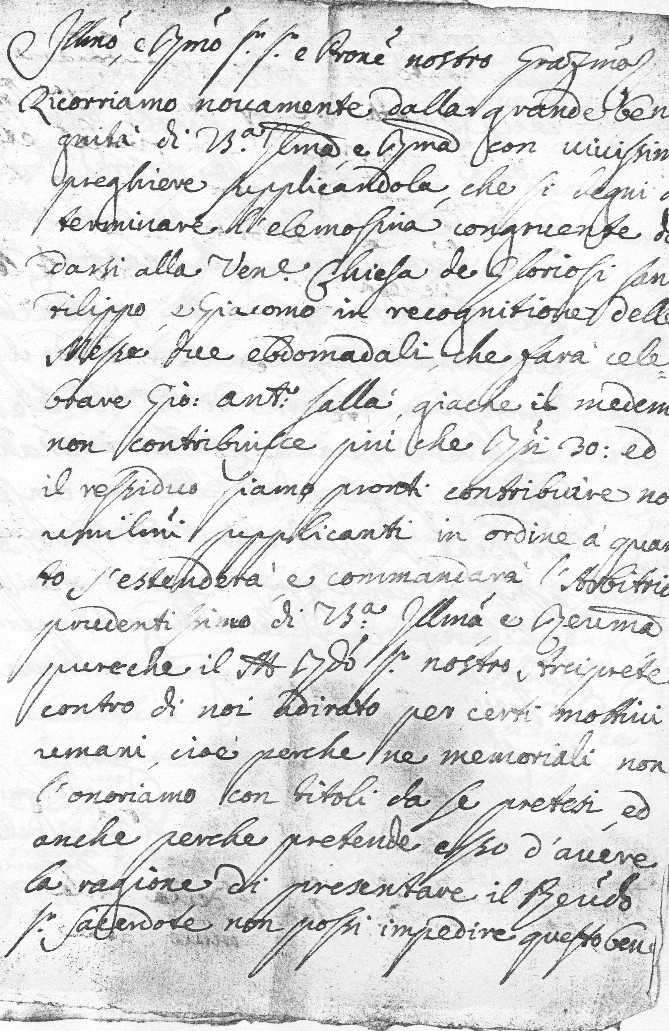 Illmo, e Rmo Sr. Sr. e Prone nostro Grazmo
Ricorriamo novamente dalla grande ben
gnità di V.S.a Illma, e Rma con vivissim
preghiere supplicandola, che si degni d
terminare l'elemosina congruente da
darsi alla Vene. Chiesa de Gloriosi San
Filippo, e Giacomo in recognitione delle
Messe due ebdomadali, che farà cele-
brare Gio: Ant.o Salla giache il medem
non contribuisce più che 30: ed
il residuo siamo pronti contribuire no
umilmi supplicanti in ordine a quan
to s'estenderà e commandarà l'Arbitrio
prudentissimo di V.S.a Illma e Reuma
pureche il Rdo Sr. nostro Arciprete
contro di noi adirato per certi mottivi
umani, cioè perche ne memoriali non
l'onoriamo con titoli da se pretesi, ed
anche perche pretende esso d'avere
la ragione di presentare il Reudo
Sr. Sacerdote non possi impedire questo ben